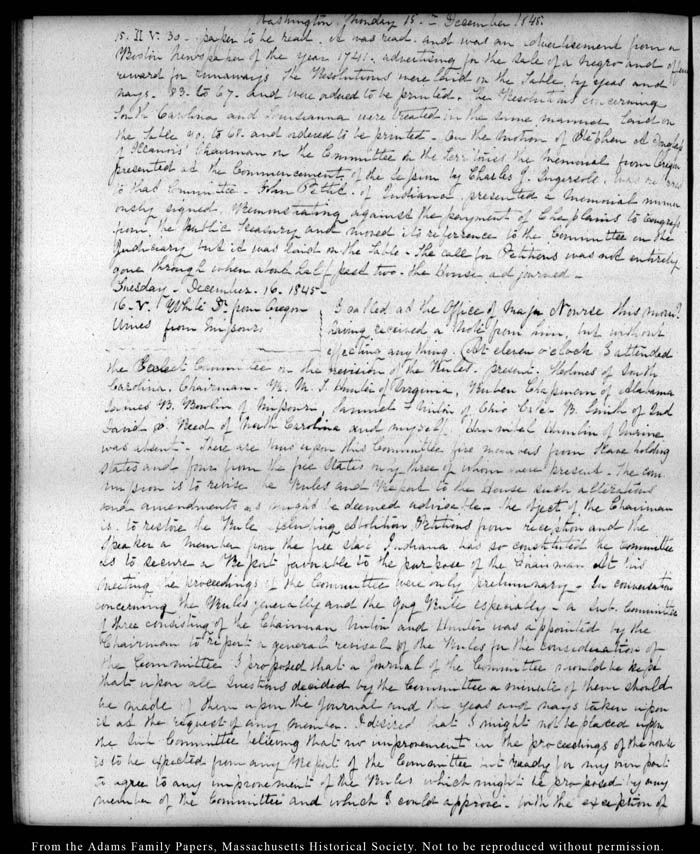 Washington Monday 15. December 1845.
15. II V. 30 paper to be read. it was read. and was an advertisement from a
Boston Newspaper of the year 1741. advertising for the sale of a negro and
reward for runaways. The Resolutions were laid on the Table by yeas and
nays. 83. to 67. and were ordered to be printed. The Resolutions concerning
South Carolina and Louisianna were treated in the same manner laid on
the Table 90. to 68. and ordered to be printed. On the motion of Stephen A Douglass
of Illinois Chairman on the Committee on the Territories the Memorial from Oregon
presented at the Commencement of the Session by Charles J. Ingersoll. was
to that Committee. John Pettit. of Indiana presented a Memorial numer
ously signed. Remonstrating against the payment of Chaplains to Congress
from the public Treasury and moved its reference to the Committee on the
Judiciary but it was laid on the Table. The call for Petitions was not entirely
gone through when about half past two. the House adjourned.
Tuesday. December. 16. 1845.
16. V. White Dr. from Oregon
from Missouri
I called at the Office of Major Nourse this morng.
having received a Note from him, but without
effecting any thing. At eleven o'clock I attended
the Select Committee on the revision of the Rules. Present. Holmes of South
Carolina. Chairman. R. M. T. Hunter of Virginia, Reuben Chapman of Alabama
James B. Bowlin of Missouri, Samuel Vinton of Ohio B. Smith of Ind
David S. Reed of North Carolina and myself. Hannibal Hamlin of Maine
was absent. There are thus upon this Committee five members from Slave holding
states and four from the free States only three of whom were present. The com
mission is to revise the Rules and Report to the House such alterations
and amendments as might be deemed advisable. The object of the Chairman
is. to restore the Rule excluding abolition Petitions from reception and the
Speaker a member from the free state Indiana has so constituted the Committee
as to secure a Report favorable to the purpose of the Chairman At this
meeting the proceedings of the Committee were only preliminary. In conversation
concerning the Rules generally and the Gag Rule especially. a Sub. Committee
of three consisting of the Chairman Vinton and Hunter was appointed by the
Chairman to report a general revisal of the Rules for the consideration of
the Committee I proposed that a Journal of the Committee should be kept
that upon all Questions decided by the Committee a minute of them should
be made of them upon the Journal and the yeas and nays taken upon
it at the request of any member. I desired that I might not be placed upon
the Sub Committee believing that no improvement in the proceedings of the house
is to be expected from any Report of the Committee but ready for my own part
to agree to any improvement of the Rules which might be proposed by any
member of the Committee and which I could approve. With the exception of
From the Adams Family Papers, Massachusetts Historical Society. Not to be reproduced without permission.